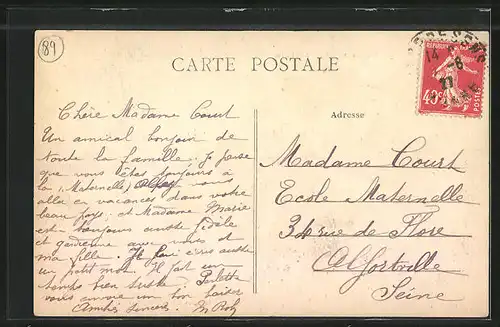 89
CARTE POSTALE
14
8
27
REPUBLIQUE
40c
POSTES
Chère Madame Court
Un amical bonjour de
toute la famille. Je pense
que vous êtes toujours à
la (Maternelle)
allé en vacances dans votre
beau pays; et Madame Marie
est toujours aussi fidèle
et gardienne avec vous et
ma fille.
un petit mot. Il fait un
temps bien Perlette
vous envoie un bon baiser
Amitiés sincères
Adresse
Madame Court
Ecole Maternelle
34 rue de Flore
Alfortville
Seine